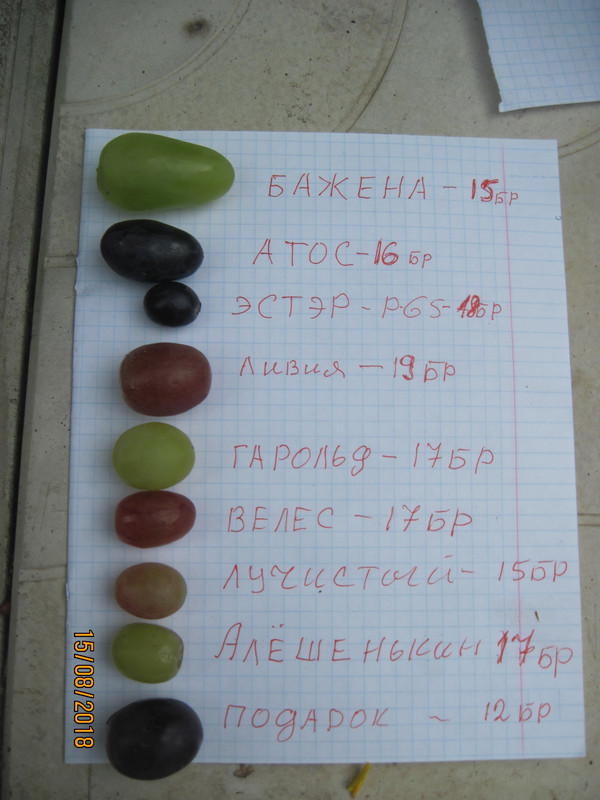 БАЖЕНА - 15 БР
АТОС - 16 БР
ЭСТЭР - Р-65 - 18 БР
ЛИВИЯ - 19 БР
ГАРОЛЬД - 17 БР
ВЕЛЕС - 17 БР
ЛУЧИСТЫЙ - 15 БР
АЛЁШЕНЬКИН 17 БР
ПОДАРОК ~ 12 БР
15/08/2018